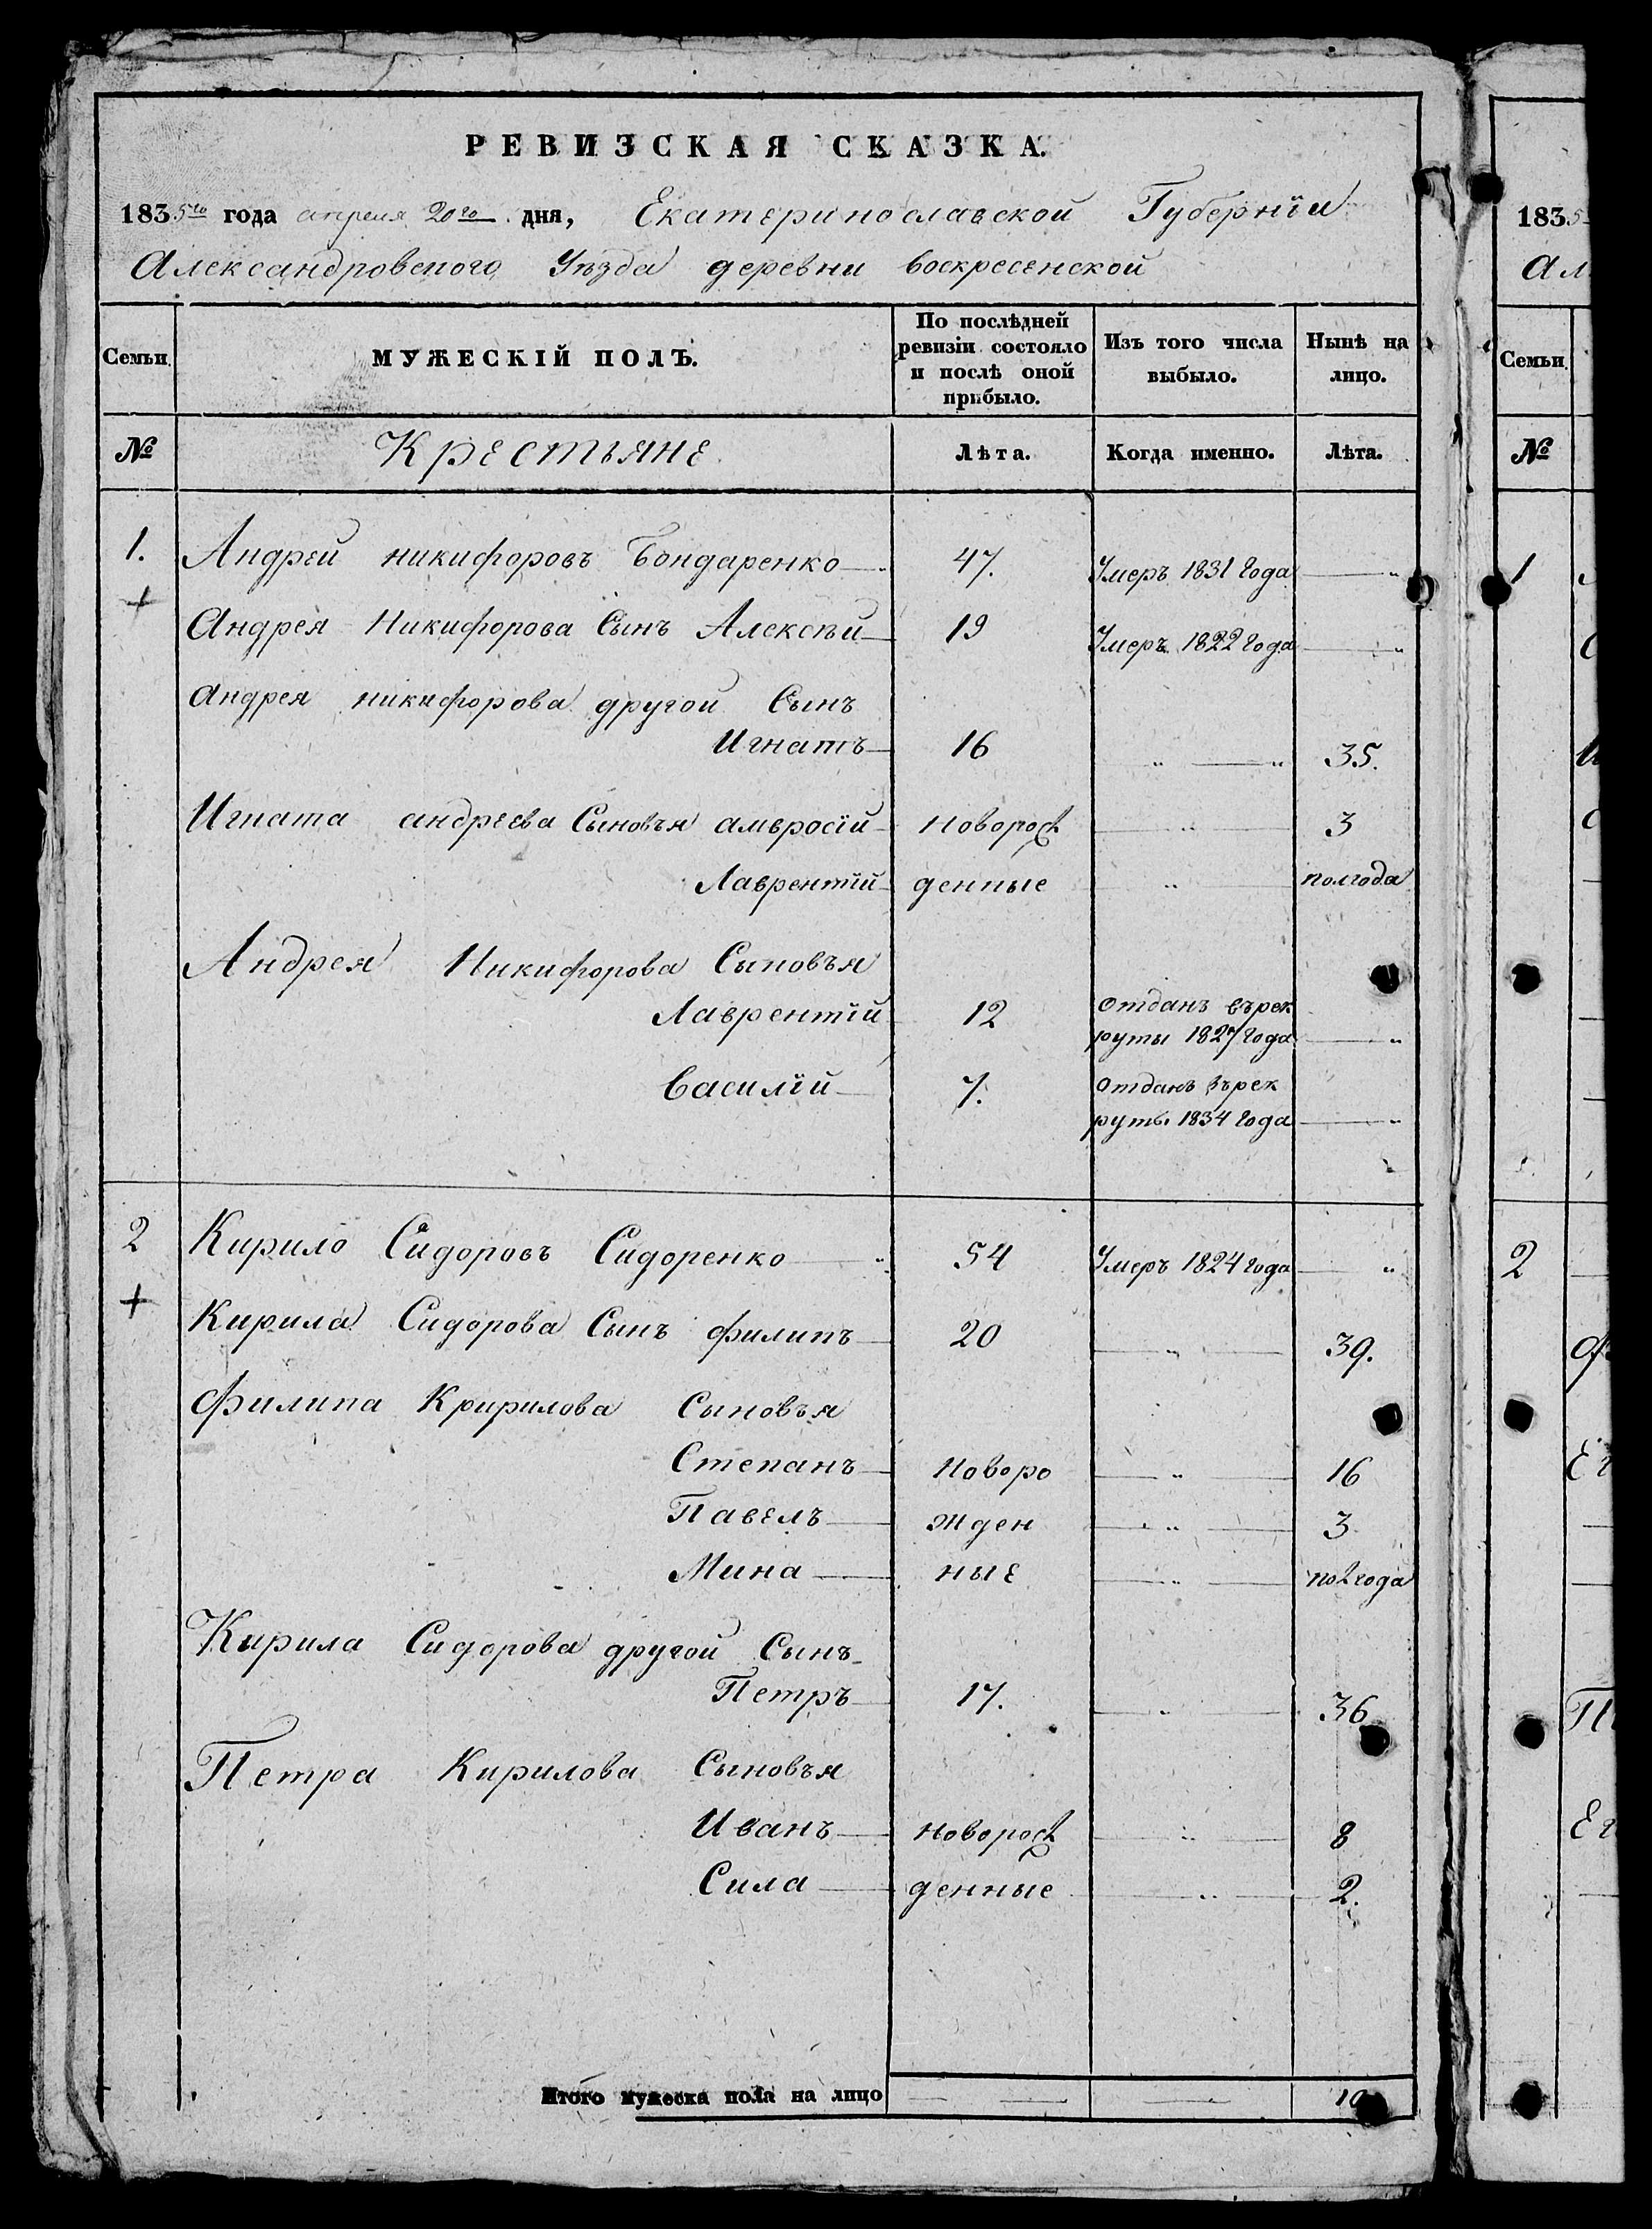 РЕВИЗСКАЯ СКАЗКА.
1835го года апреля 20го дня, Екатеринославской Губернїи
Александровского Уѣзда деревни воскресенской
Семьи.
МУЖЕСКІЙ ПОЛЪ.
По послѣдней ревизіи состояло и послѣ оной прибыло.
Изъ того числа выбыло.
Нынѣ на лицо.
№ Крестьяне Лѣта. Когда именно. Лѣта.
1. Андрей никифоровъ Бондаренко 47. Умеръ 1831 года — "
+
Андрея Никифорова Сынъ Алексѣй 19 Умеръ 1822 года — "
андрея никифорова другой Сынъ
Игнатъ 16 " — " 35.
Игната андреева Сыновья амвросїй новорож — " — 3
Лаврентїй денные " — полгода
Андрея Никифорова Сыновья
Лаврентїй 12 отданъ въ рек
руты 1827 года — "
Василїй 7. отданъ въ рек
руты 1834 года — "
2 Кирило Сидоровъ Сидоренко — " 54 Умеръ 1824 года — "
+
Кирила Сидорова Сынъ филипъ 20 — " — 39.
Филипа Кририлова Сыновья
Степанъ Новоро — " — 16
Павелъ жден — " — 3
Мина ные — " — пол года
Кирила Сидорова другой Сынъ
Петръ 17. — " — 36
Петра Кирилова Сыновья
Иванъ новорож — " — 8
Сила денные — " — 2.
Итого мужеска пола на лицо — — — 10
1835
Ал
Семьи.
№
1
2